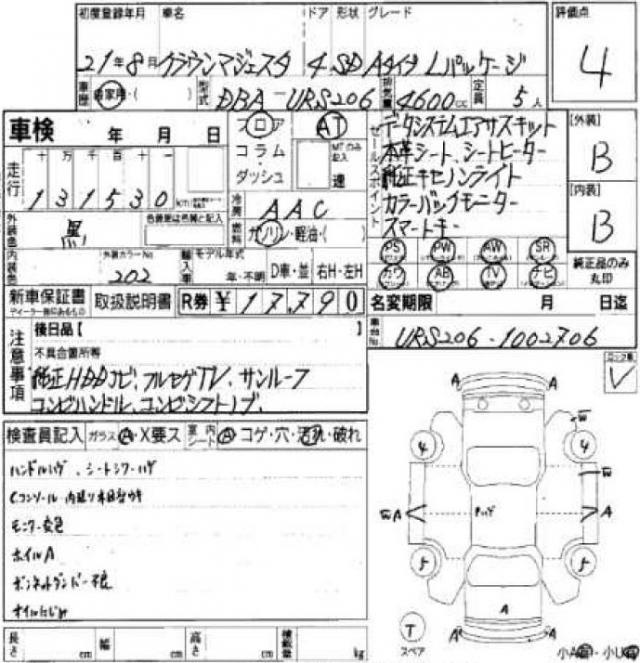 初度登録年月 車名 ドア 形状 グレード 評価点
21年8月 クラウンマジェスタ 4 SD Aタイプ Lパッケージ 4
車歴 自家用・( ) 型式 DBA-URS206 排気量 4600cc 定員 5人
車検 年 月 日
フロア
コラム
ダッシュ
AT
MTのみ記入
速
セールスポイント
データシステムエアサスキット
本革シート、シートヒーター
純正キセノンライト
カラーバックモニター
スマートキー
[外装]
B
[内装]
B
走行 十 万 千 百 十 一
131530 km
冷房 AAC
燃料 ガソリン・軽油・( )
外装色 黒 色替車は元色と記入
内装色 外装カラーNo. 202
輸入車 モデル年式 年・不明 D車・並 右H・左H
PS PW AW SR
カワ AB TV ナビ
純正品のみ丸印
新車保証書 ディーラー印のあるもの 取扱説明書 R券 ¥17,790
名変期限 月 日迄
車台No. URS206-1002706
注意事項
後日品【 】
不具合箇所等
純正HDDナビ、フルセグTV、サンルーフ
コンビハンドル、コンビシフトノブ、
検査員記入 ガラス A・X要ス 室内シート A コゲ・穴・汚れ・破れ
ハンドルハゲ、シートシワ・ハゲ
Cコンソール・内張り木目キズウキ
モニター変色
ホイルA
ボンネットダンパー不良
オイルにじみ
V
A A
W
4 4
W
WA A
5 5
A
A A
T
スペア
長さ cm 幅 cm 高さ cm 積載量 kg